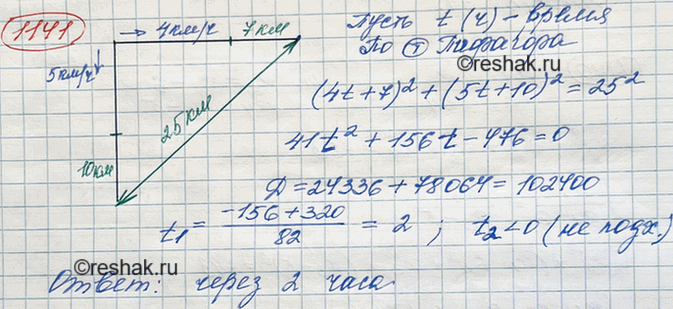 1141
→ 4км/ч 7км
5км/ч↓
25 км
10км
Пусть t (ч) - время
По Ⓣ Пифагора
(4t+7)² + (5t+10)² = 25²
41t² + 156t - 476 = 0
©reshak.ru
D = 24336 + 78064 = 102400
t₁ = (-156 + 320)/82 = 2 ; t₂ < 0 (не подх.)
©reshak.ru
Ответ: через 2 часа